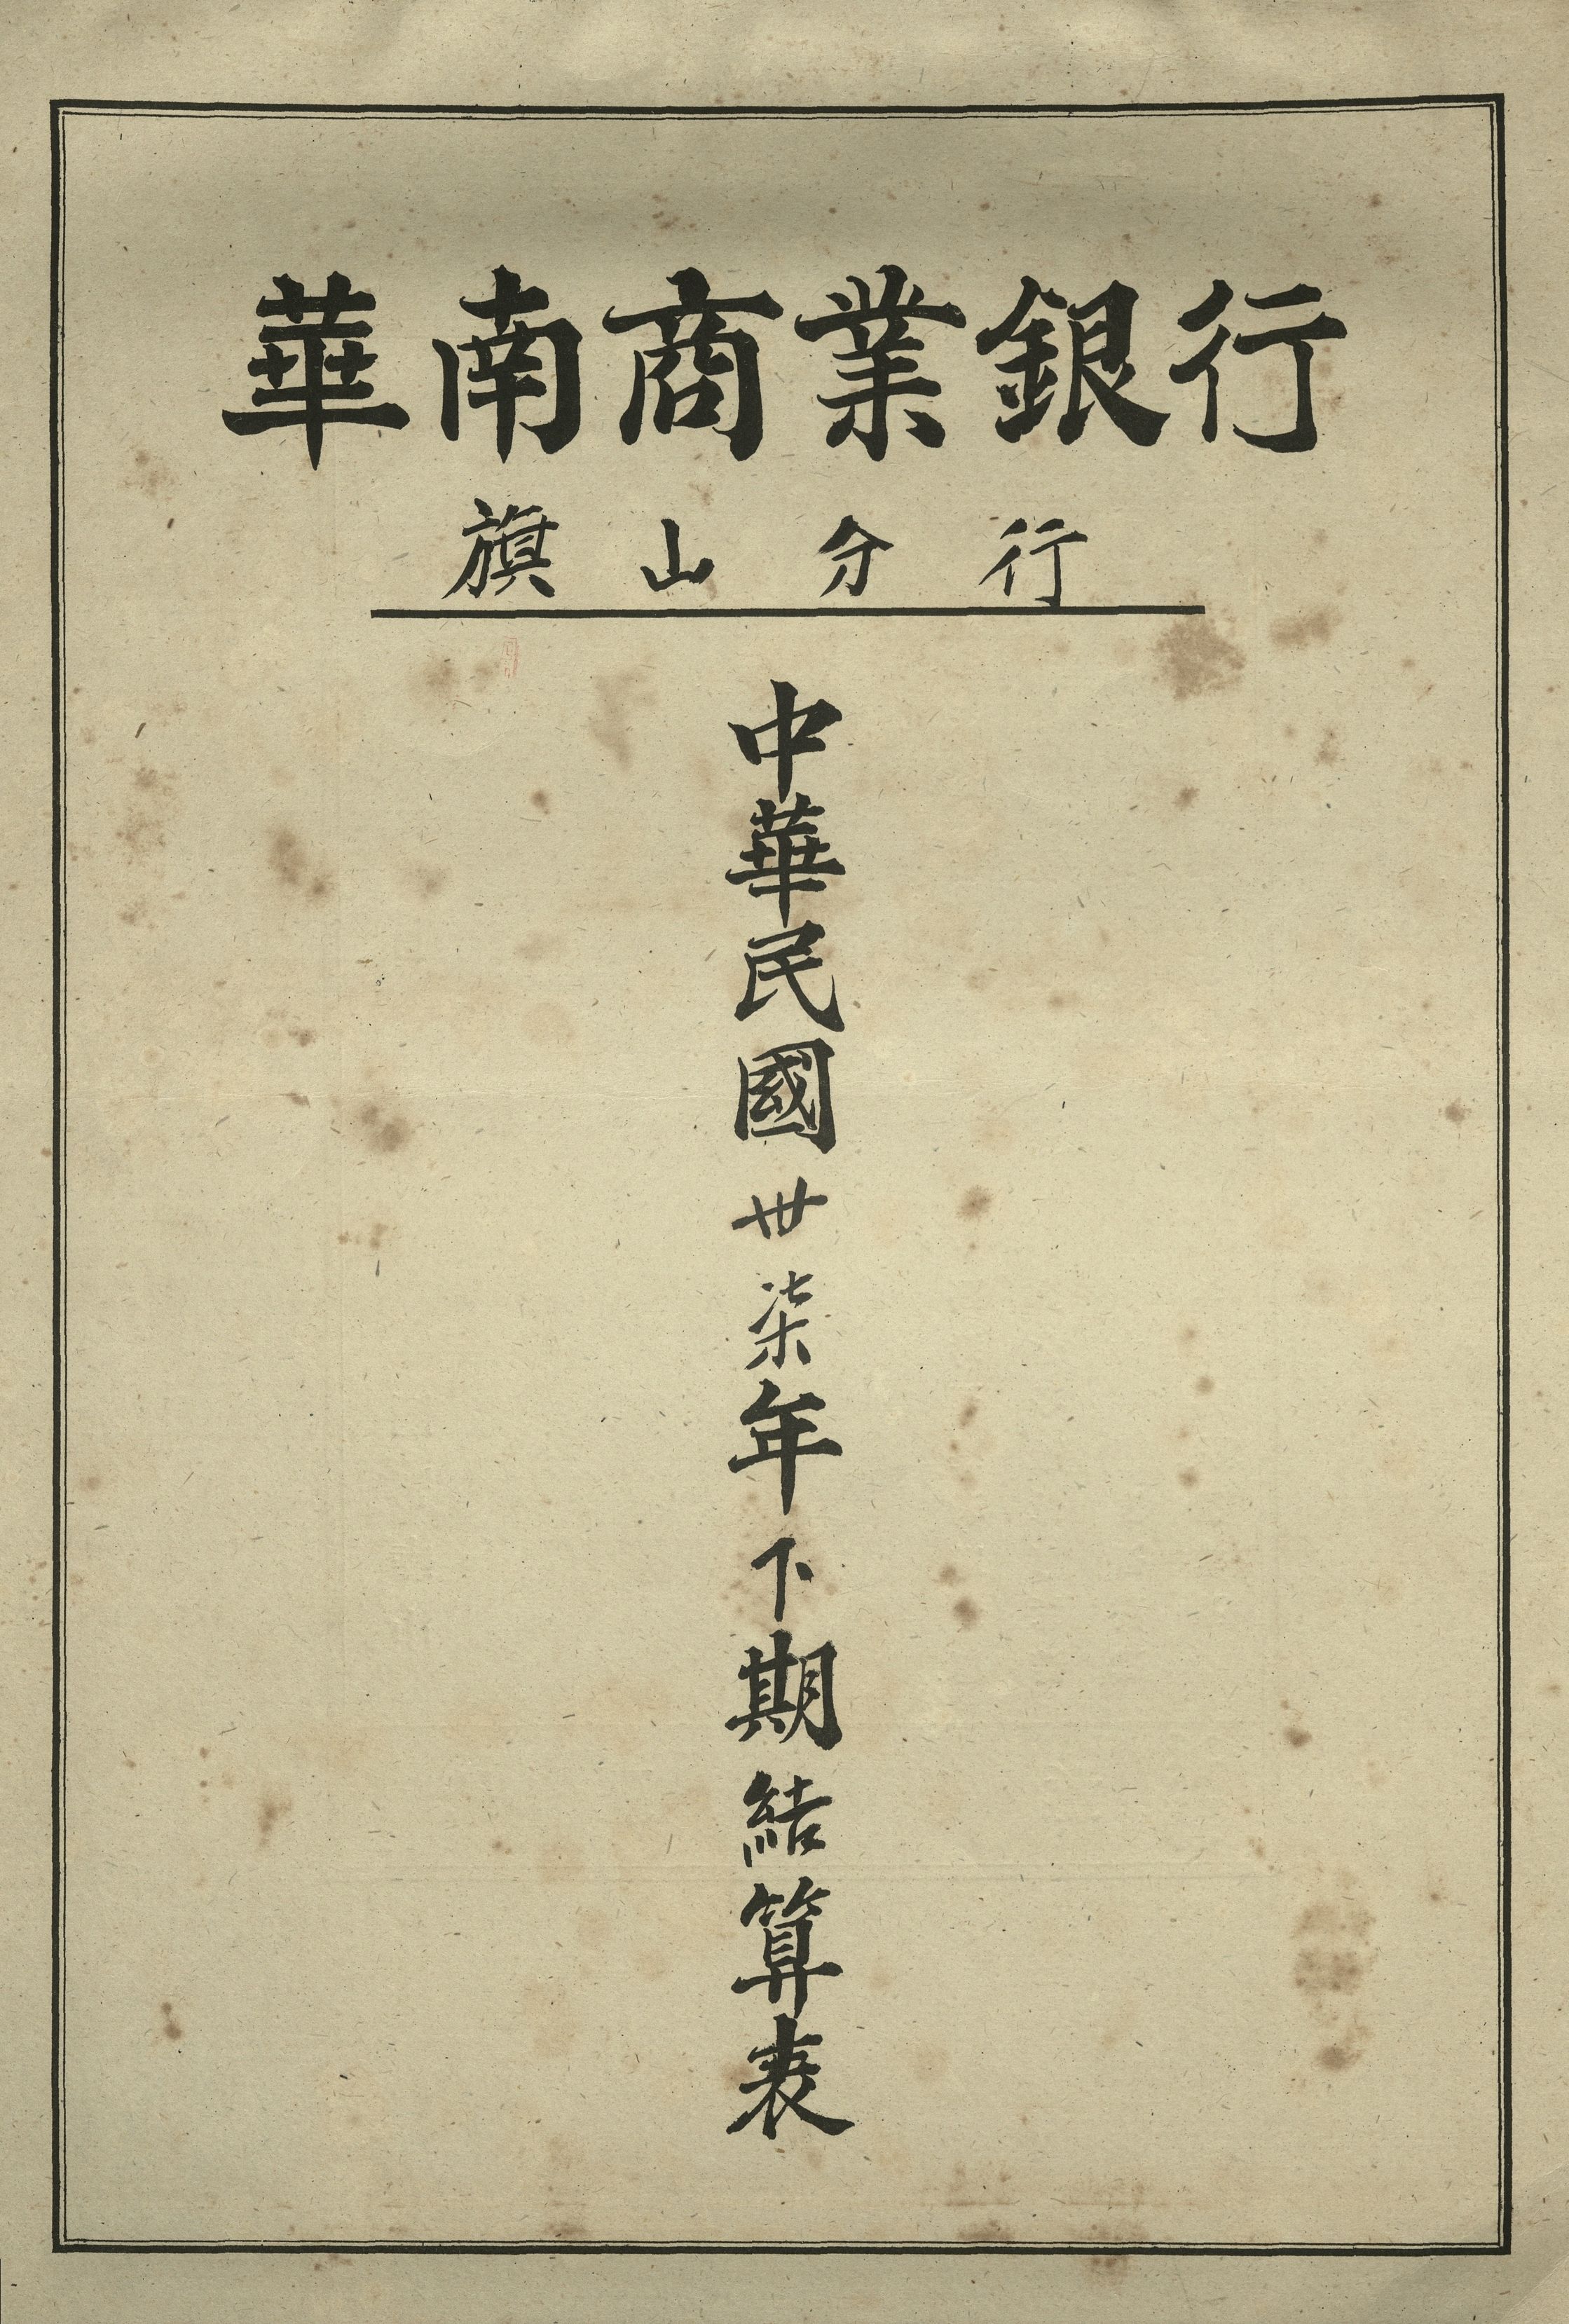 華南商業銀行
旗山分行
中華民國卅柒年下期結算表